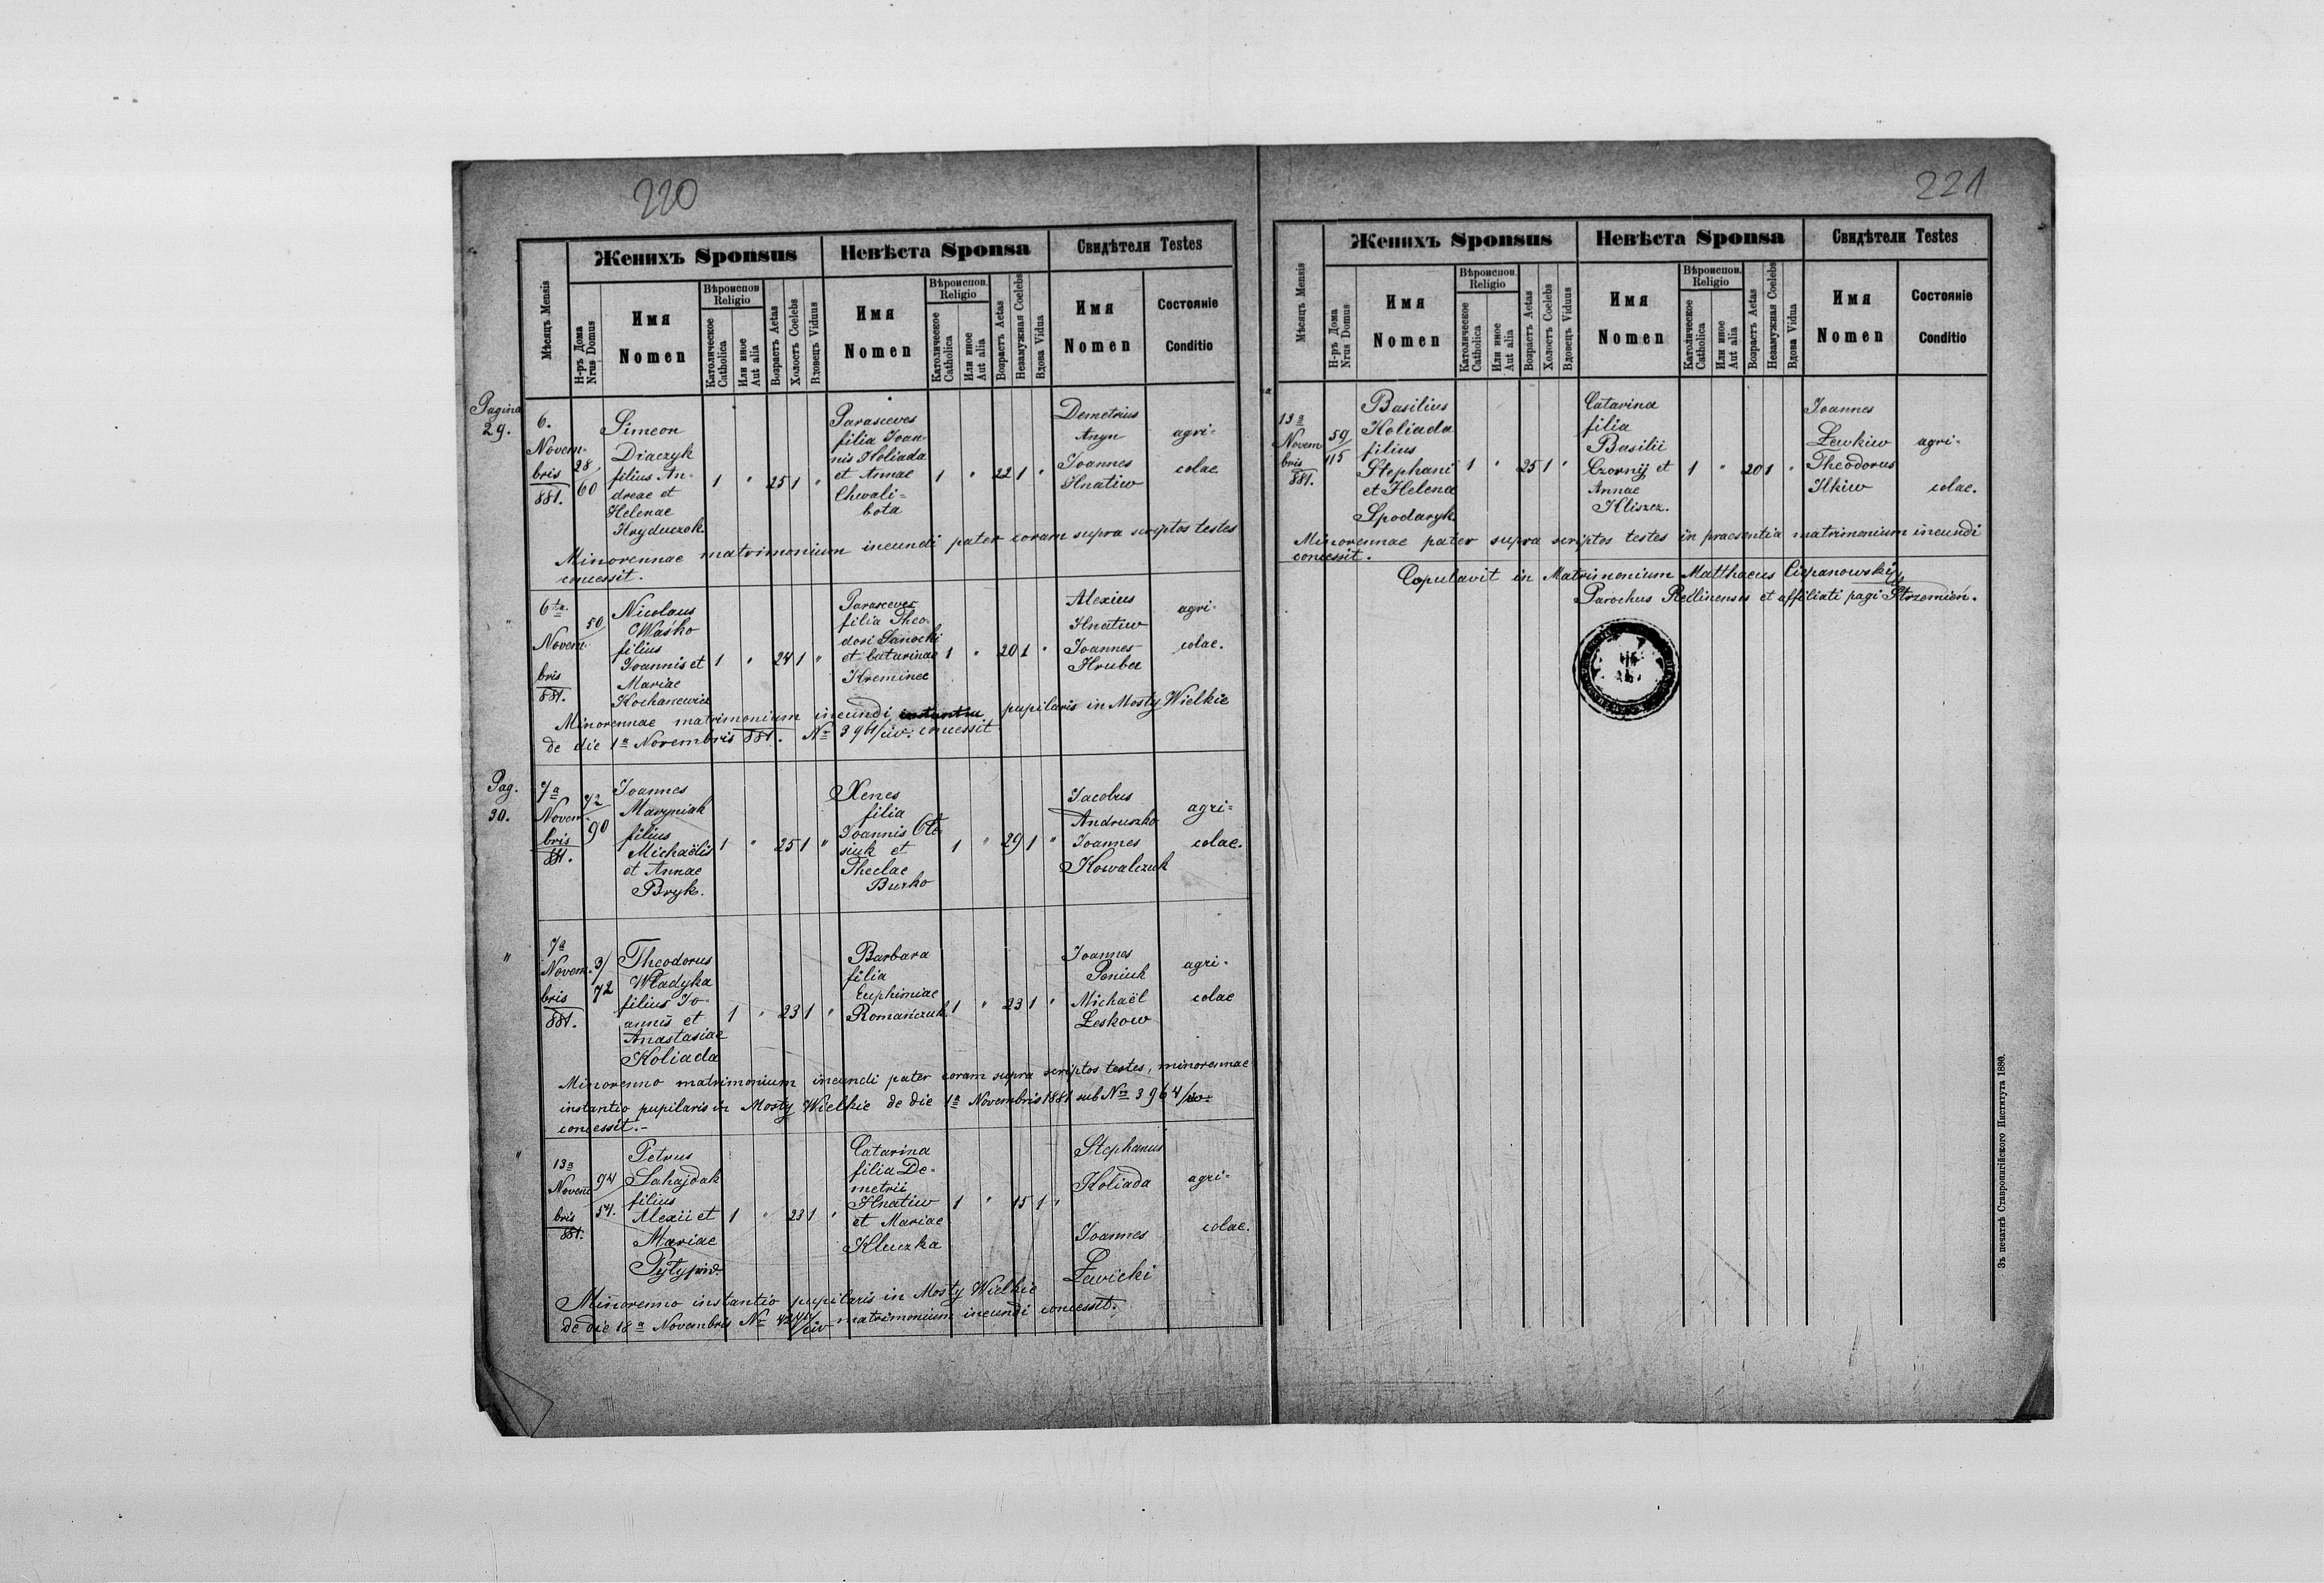 220
Женихъ Sponsus
Невѣста Sponsa
Свидѣтели Testes
Мѣсяцъ Mensis
Н-ръ Дома
Nrus Domus
Имя
Nomen
Вѣроиспов
Religio
Католическое
Catholica
Или иное
Aut alia
Возрастъ Aetas
Холостъ Coelebs
Вдовецъ Viduus
Имя
Nomen
Вѣроиспов.
Religio
Католическое
Catholica
Или иное
Aut alia
Возрастъ Aetas
Незамужная Coelebs
Вдова Vidua
Имя
Nomen
Состояніе
Conditio
Pagina
29.
6.
Novem-
bris
881.
28/
60
Simeon
Diaczyk
filius An-
dreae et
Helenae
Hryduczok.
1 " 25 1 "
Parasceves
filia Joan-
nis Koliada
et Annae
Chwali=
bota
1 " 22 1 "
Demetrius
Anyn
Joannes
Hnatiw
agri-
colae
Minorennae matrimonium ineundi pater coram supra scriptos testes
concessit.
"
6ta
Novem-
bris
881.
50/
Nicolaus
Waśko
filius
Joannis et
Mariae
Kochanewicz
1 " 24 1 "
Parasceves
filia Theo-
dori Sanocki
et Catarinae
Kreminec
1 " 20 1 "
Alexius
Hnatiw
Joannes
Hruber
agri-
colae.
Minorennae matrimonium ineundi pupilaris in Mosty Wielkie
de die 1a Novembris 881. No 3961/civ. concessit
Pag.
30.
7a
Novem-
bris
881.
72
90
Joannes
Maryniak
filius
Michaëlis
et Annae
Bryk.
1 " 25 1 "
Xenes
filia
Joannis Ole
siuk et
Theclae
Burko
1 " 29 1 "
Jacobus
Andruszko
Joannes
Kowalczuk
agri=
colae.
"
7a
Novem-
bris
881.
3/
72
Theodorus
Władyka
filius Jo-
annis et
Anastasiae
Koliada
1 " 23 1 "
Barbara
filia
Euphimiae
Romańczuk
1 " 23 1 "
Joannes
Poniuk
Michaël
Leskow
agri-
colae
Minorenno matrimonium ineundi pater coram supra scriptos testes, minorennae
instantio pupilaris in Mosty Wielkie de die 1a Novembris 1881 sub No 3964/civ.
concessit.-
"
13a
Novem
bris
881.
94/
54.
Petrus
Sahajdak
filius
Alexii et
Mariae
Pytypiw.
1 " 23 1 "
Catarina
filia De-
metrii
Hnatiw
et Mariae
Kluczka
1 " 15 1 "
Stephanus
Koliada
Joannes
Lewicki
agri-
colae.
Minorenno instantio pupilaris in Mosty Wielkie
de die 18a Novembris No matrimonium ineundi concessit.
221
Женихъ Sponsus
Невѣста Sponsa
Свидѣтели Testes
Мѣсяцъ Mensis
Н-ръ Дома
Nrus Domus
Имя
Nomen
Вѣроиспов.
Religio
Католическое
Catholica
Или иное
Aut alia
Возрастъ Aetas
Холостъ Coelebs
Вдовецъ Viduus
Имя
Nomen
Вѣроиспов.
Religio
Католическое
Catholica
Или иное
Aut alia
Возрастъ Aetas
Незамужная Coelebs
Вдова Vidua
Имя
Nomen
Состояніе
Conditio
13a
Novem
bris
881.
59/
115
Basilius
Koliada
filius
Stephani
et Helena
Spodaryk.
1 " 25 1 "
Catarina
filia
Basilii
Czornij et
Annae
Kliszcz.
1 " 20 1 "
Joannes
Lewkiw
Theodorus
Ilkiw
agri-
colae.
Minorennae pater supra scriptos testes in praesentia matrimonium ineundi
concessit.
Copulavit in Matrimonium Matthaeus Ciepanowski
Parochus Reklinensis et affiliati pagi Strzemień.
Зъ печатнѣ Ставропигійского Института 1880.